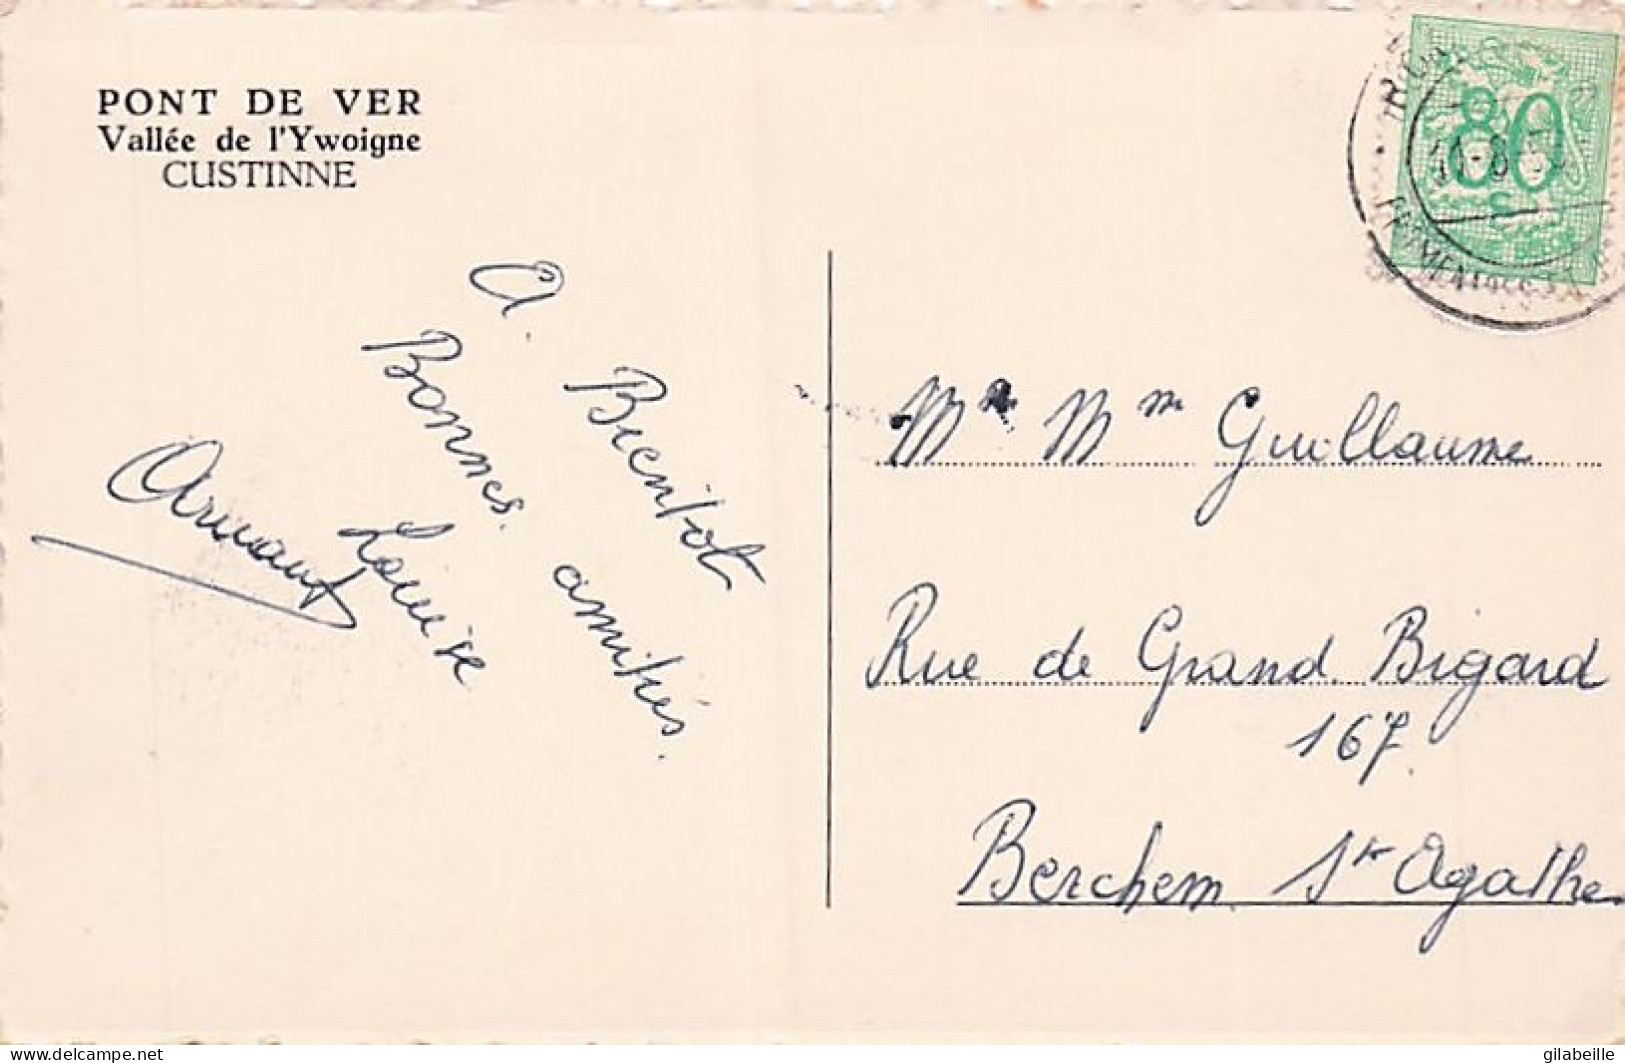 PONT DE VER
Vallée de l'Ywoigne
CUSTINNE
A. Bientot
Bonnes. amitiés.
Louise
Armand
Mr Mme Guillaume
Rue de Grand. Bigard
167.
Berchem. Ste Agathe
80
S
delcampe.net
gilabeille